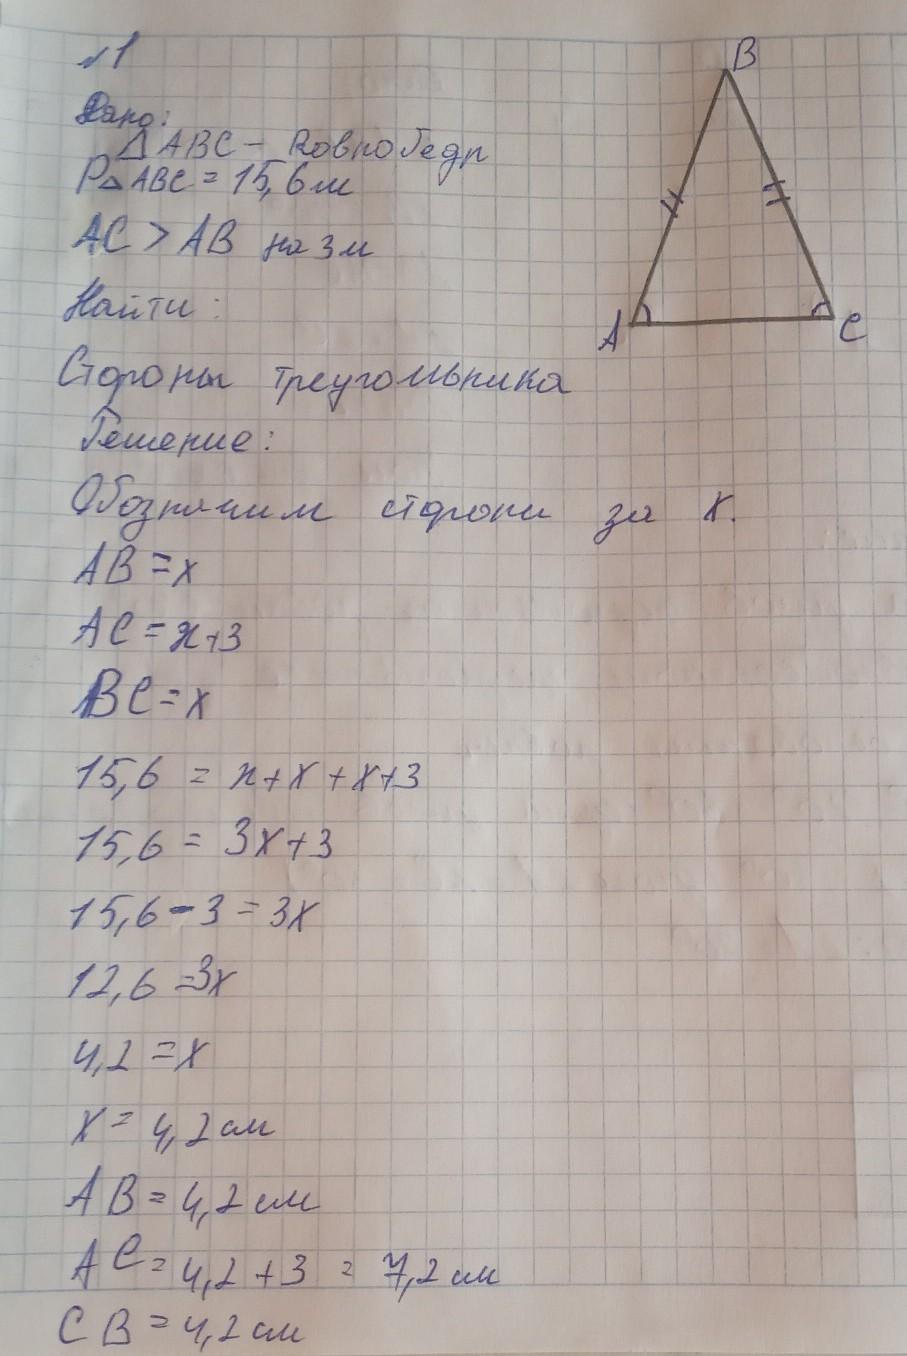 №1
Дано:
△ABC - Равнобедр
P△ABC = 15,6м
AC > AB на 3м
Найти:
Стороны треугольника
Решение:
Обозначим стороны за x.
AB = x
AC = x+3
BC = x
15,6 = x + x + x+3
15,6 = 3x+3
15,6 - 3 = 3x
12,6 = 3x
4,2 = x
x = 4,2 см
AB = 4,2 см
AC = 4,2 + 3 = 7,2 см
CB = 4,2 см
B
A
C